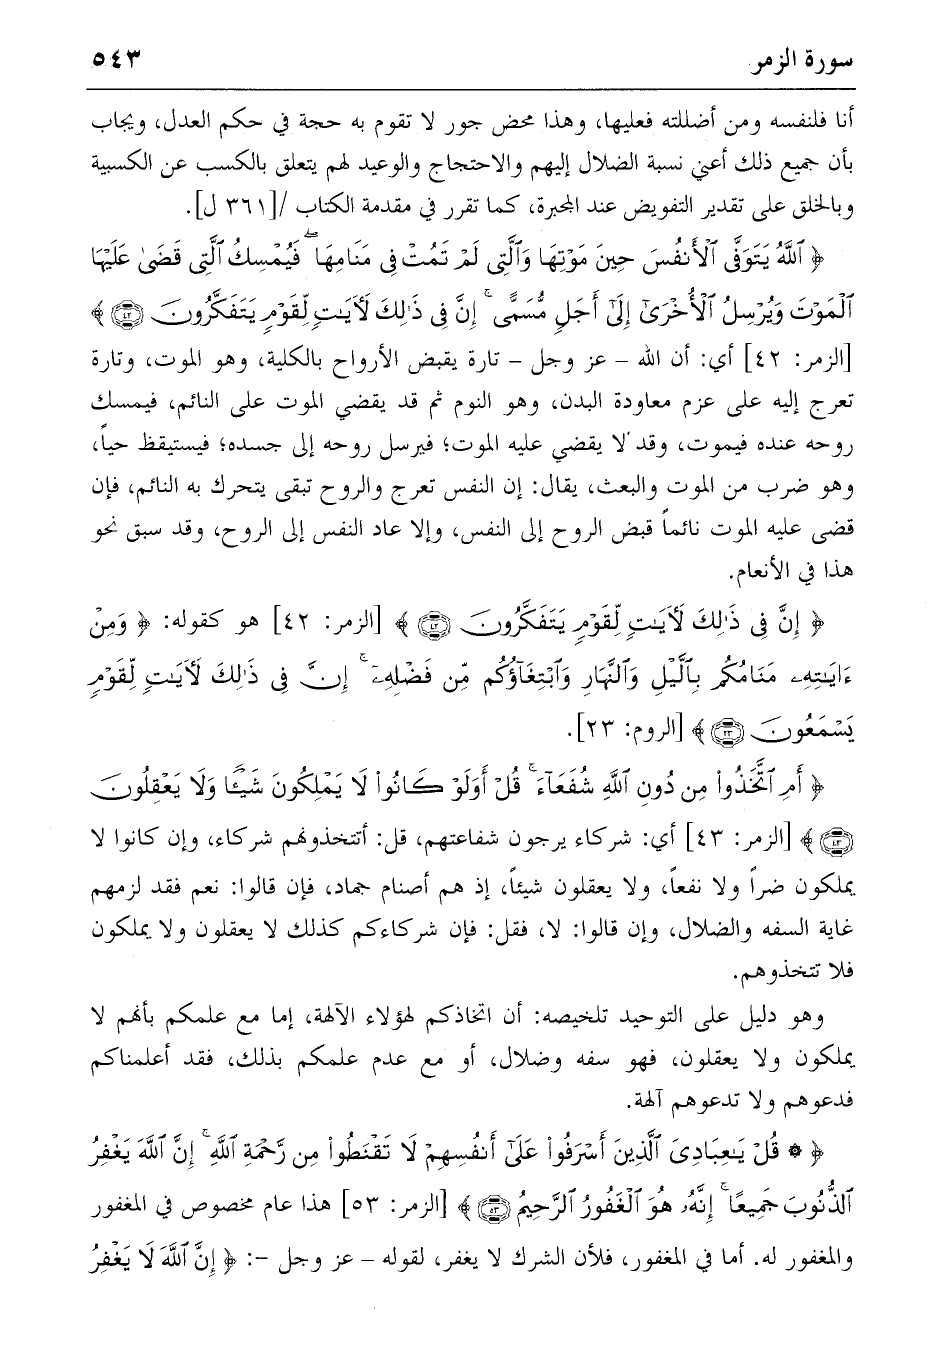 سورة الزمر ٥٤٣
أنا فلنفسه ومن أضللته فعليها، وهذا محض جور لا تقوم به حجة في حكم العدل، ويجاب
بأن جميع ذلك أعني نسبة الضلال إليهم والاحتجاج والوعيد لهم يتعلق بالكسب عن الكسبية
وبالخلق على تقدير التفويض عند المجبرة، كما تقرر في مقدمة الكتاب /[٣٦١ ل].
﴿ ٱللَّهُ يَتَوَفَّى ٱلْأَنفُسَ حِينَ مَوْتِهَا وَٱلَّتِى لَمْ تَمُتْ فِى مَنَامِهَا ۖ فَيُمْسِكُ ٱلَّتِى قَضَىٰ عَلَيْهَا
ٱلْمَوْتَ وَيُرْسِلُ ٱلْأُخْرَىٰٓ إِلَىٰٓ أَجَلٍ مُّسَمًّى ۚ إِنَّ فِى ذَٰلِكَ لَءَايَـٰتٍ لِّقَوْمٍ يَتَفَكَّرُونَ ﴿٤٢﴾ ﴾
[الزمر: ٤٢] أي: أن الله – عز وجل – تارة يقبض الأرواح بالكلية، وهو الموت، وتارة
تعرج إليه على عزم معاودة البدن، وهو النوم ثم قد يقضي الموت على النائم، فيمسك
روحه عنده فيموت، وقد لا يقضي عليه الموت؛ فيرسل روحه إلى جسده؛ فيستيقظ حياً،
وهو ضرب من الموت والبعث، يقال: إن النفس تعرج والروح تبقى يتحرك به النائم، فإن
قضى عليه الموت نائماً قبض الروح إلى النفس، وإلا عاد النفس إلى الروح، وقد سبق نحو
هذا في الأنعام.
﴿ إِنَّ فِى ذَٰلِكَ لَءَايَـٰتٍ لِّقَوْمٍ يَتَفَكَّرُونَ ﴿٤٢﴾ ﴾ [الزمر: ٤٢] هو كقوله: ﴿ وَمِنْ
ءَايَـٰتِهِۦ مَنَامُكُم بِٱلَّيْلِ وَٱلنَّهَارِ وَٱبْتِغَآؤُكُم مِّن فَضْلِهِۦٓ ۚ إِنَّ فِى ذَٰلِكَ لَءَايَـٰتٍ لِّقَوْمٍ
يَسْمَعُونَ ﴿٢٣﴾ ﴾ [الروم: ٢٣].
﴿ أَمِ ٱتَّخَذُوا۟ مِن دُونِ ٱللَّهِ شُفَعَآءَ ۚ قُلْ أَوَلَوْ كَانُوا۟ لَا يَمْلِكُونَ شَيْـًٔا وَلَا يَعْقِلُونَ
﴿٤٣﴾ ﴾ [الزمر: ٤٣] أي: شركاء يرجون شفاعتهم، قل: أتتخذونهم شركاء، وإن كانوا لا
يملكون ضراً ولا نفعاً، ولا يعقلون شيئاً، إذ هم أصنام جماد، فإن قالوا: نعم فقد لزمهم
غاية السفه والضلال، وإن قالوا: لا، فقل: فإن شركاءكم كذلك لا يعقلون ولا يملكون
فلا تتخذوهم.
وهو دليل على التوحيد تلخيصه: أن اتخاذكم لهؤلاء الآلهة، إما مع علمكم بأنهم لا
يملكون ولا يعقلون، فهو سفه وضلال، أو مع عدم علمكم بذلك، فقد أعلمناكم
فدعوهم ولا تدعوهم آلهة.
﴿ ۞ قُلْ يَـٰعِبَادِىَ ٱلَّذِينَ أَسْرَفُوا۟ عَلَىٰٓ أَنفُسِهِمْ لَا تَقْنَطُوا۟ مِن رَّحْمَةِ ٱللَّهِ ۚ إِنَّ ٱللَّهَ يَغْفِرُ
ٱلذُّنُوبَ جَمِيعًا ۚ إِنَّهُۥ هُوَ ٱلْغَفُورُ ٱلرَّحِيمُ ﴿٥٣﴾ ﴾ [الزمر: ٥٣] هذا عام مخصوص في المغفور
والمغفور له. أما في المغفور، فلأن الشرك لا يغفر، لقوله – عز وجل –: ﴿ إِنَّ ٱللَّهَ لَا يَغْفِرُ